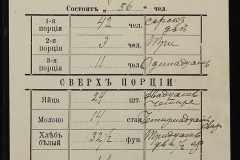 Состоитъ „ 56 „ чел.
1-я порція 42 чел. сорокъ два
2-я порція 3 чел. три
3-я порція 11 чел. Одинадцать
СВЕРХЪ ПОРЦІИ
Яйца 24 шт. двадцать четыре
Молоко 14 стак. Четырнадцать
Хлѣбъ бѣлый 32½ фун. Тридцать два